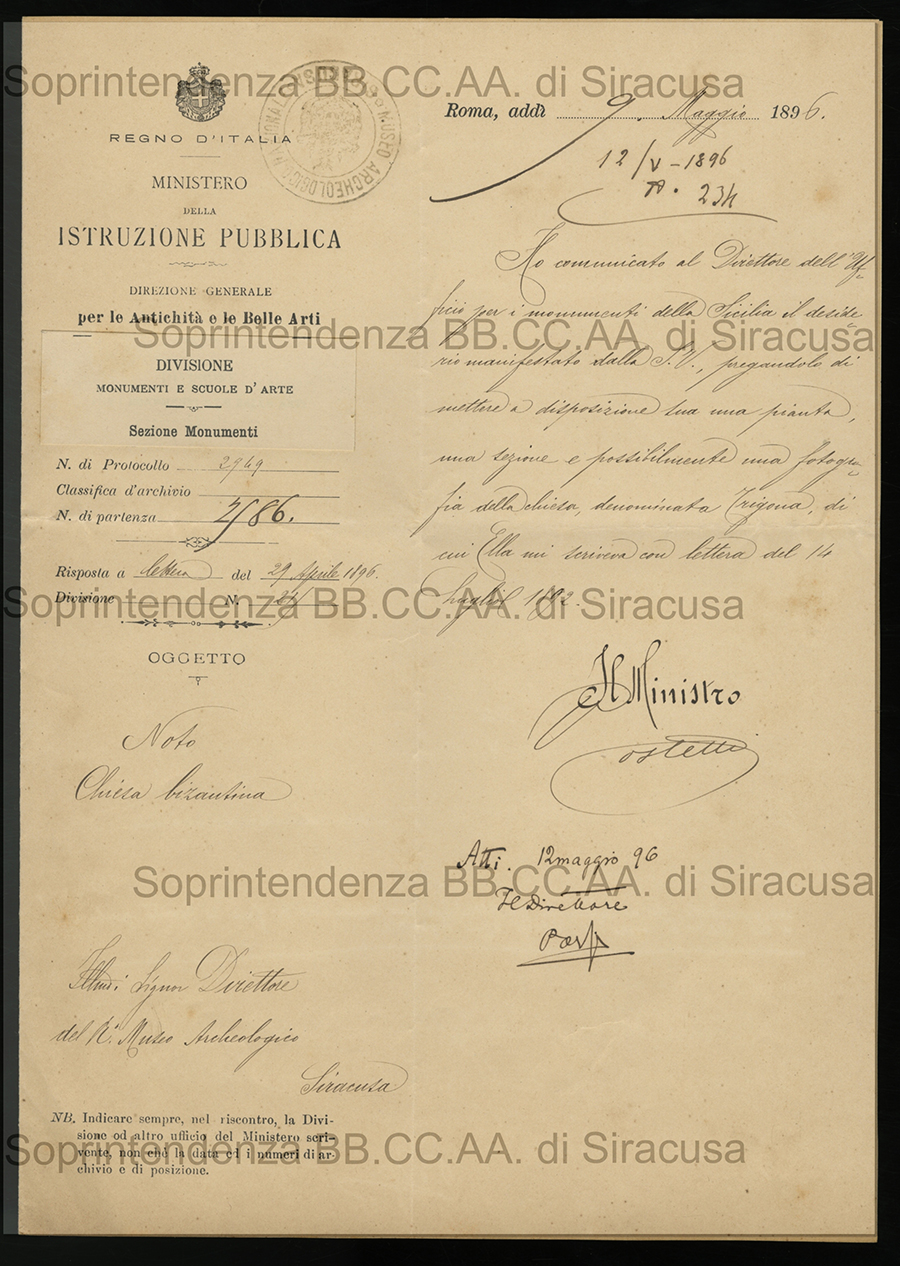 Soprintendenza BB.CC.AA. di Siracusa
REGNO D'ITALIA
MINISTERO
DELLA
ISTRUZIONE PUBBLICA
DIREZIONE GENERALE
per le Antichità e le Belle Arti
DIVISIONE
MONUMENTI E SCUOLE D'ARTE
Sezione Monumenti
N. di Protocollo 2969
Classifica d'archivio
N. di partenza
Risposta a lettera del 29 Aprile 1896
Divisione N.
OGGETTO
Noto
Chiesa bizantina
Illmo: Signor Direttore
del R.º Museo Archeologico
Siracusa
NB. Indicare sempre, nel riscontro, la Divi-
sione od altro ufficio del Ministero scri-
vente, non chè la data ed i numeri di ar-
chivio e di posizione.
MUSEO ARCHEOLOGICO
Roma, addì 9. Maggio 1896.
12/V-1896
234
Ho comunicato al Direttore dell'Uf-
ficio per i monumenti della Sicilia il deside-
rio manifestato dalla S.V., pregandolo di
mettere a disposizione sua una pianta,
una sezione e possibilmente una fotogra-
fia della chiesa, denominata Trigona, di
cui Ella mi scriveva con lettera del 14
Luglio 1892.
Il Ministro
Costetti
Atti. 12 maggio 96
Il Direttore
Soprintendenza BB.CC.AA. di Siracusa
Soprintendenza BB.CC.AA. di Siracusa
Soprintendenza BB.CC.AA. di Siracusa
Soprintendenza BB.CC.AA. di Siracusa